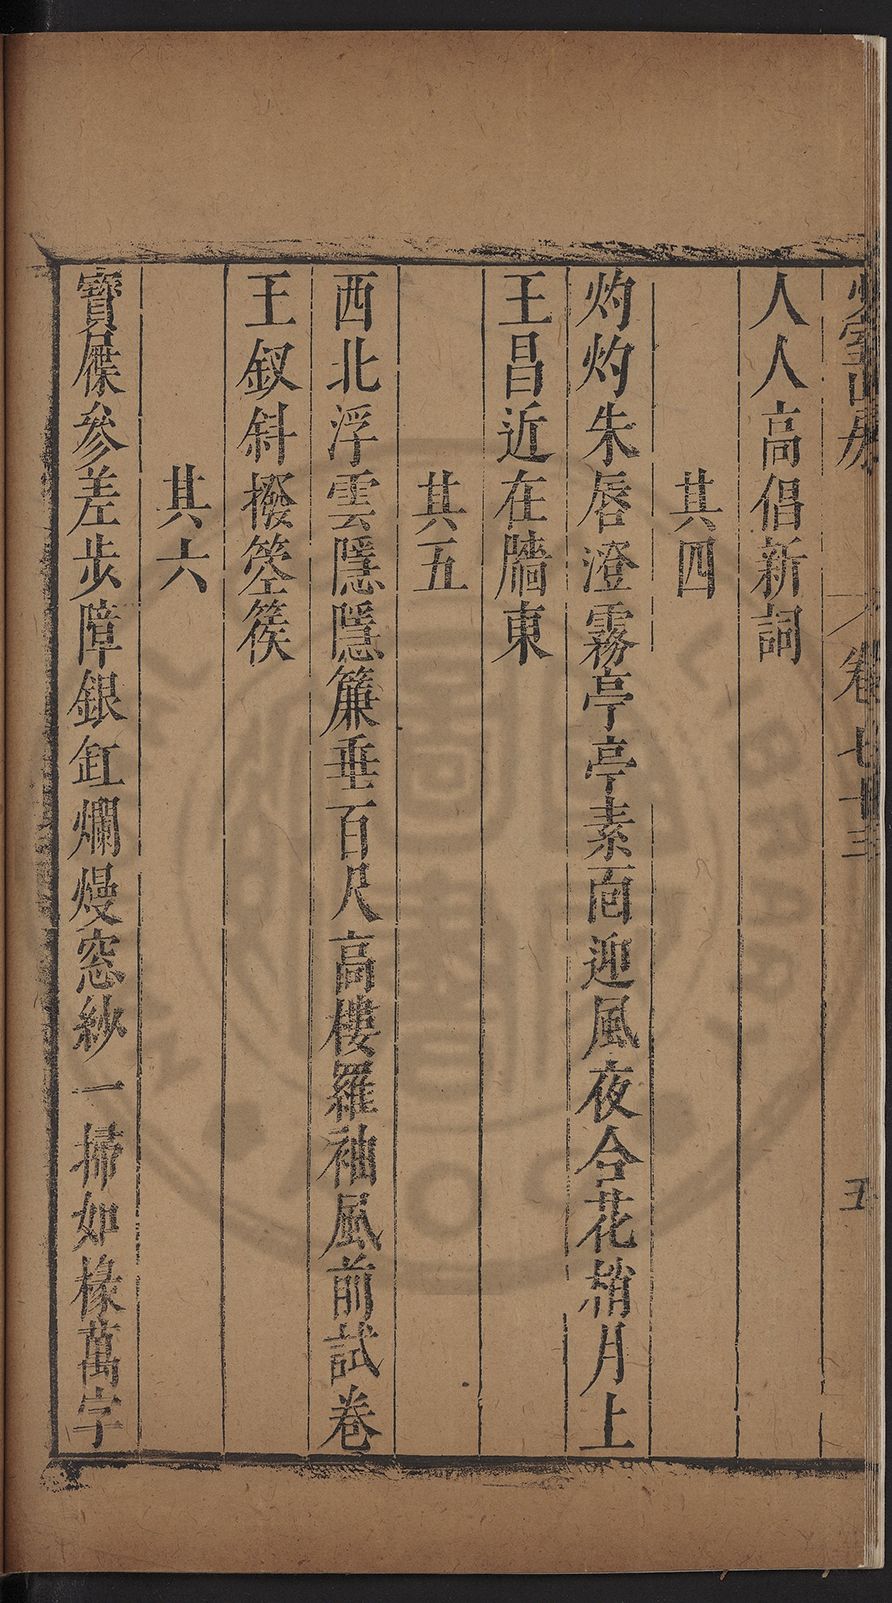 人人高倡新詞
其四
灼灼朱唇澄霧亭亭素面迎風夜合花梢月上
王昌近在牆東
其五
西北浮雲隱隱簾垂百尺高樓羅袖風前試卷
王釵斜撥箜篌
其六
寶屧參差步障銀缸爛熳窓紗一掃如椽萬字
山房
卷七十三
五